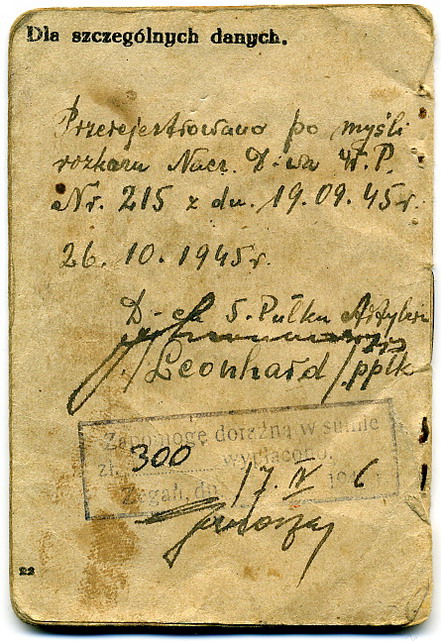 Dla szczególnych danych.
Przerejestrowano po myśli
rozkazu Nacz. D-wa W.P.
Nr. 215 z dn. 19.09.45r.
26.10.1945r.
D-ca 5. Pułku Artylerii
/Leonhard/ ppłk
Zapomogę doraźną w sumie
zł. 300 wypłacono.
Żegań, dn. 17. IV 1946
22